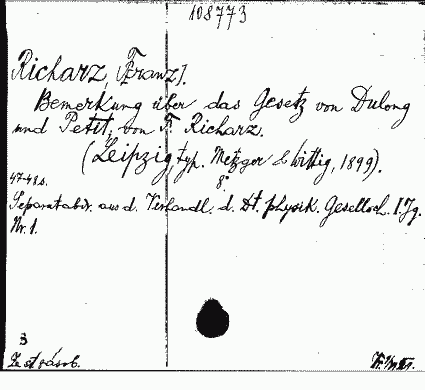 108773
Richarz, [Franz].
Bemerkung über das Gesetz von Dulong
und Petit, von F. Richarz.
(Leipzig, typ. Metzger & Wittig, 1899).
47-48 s. 8°.
Separatabdr. aus d. Verhandl. d. Dt. physik. Gesellsch. I. Jg.
Nr. 1.